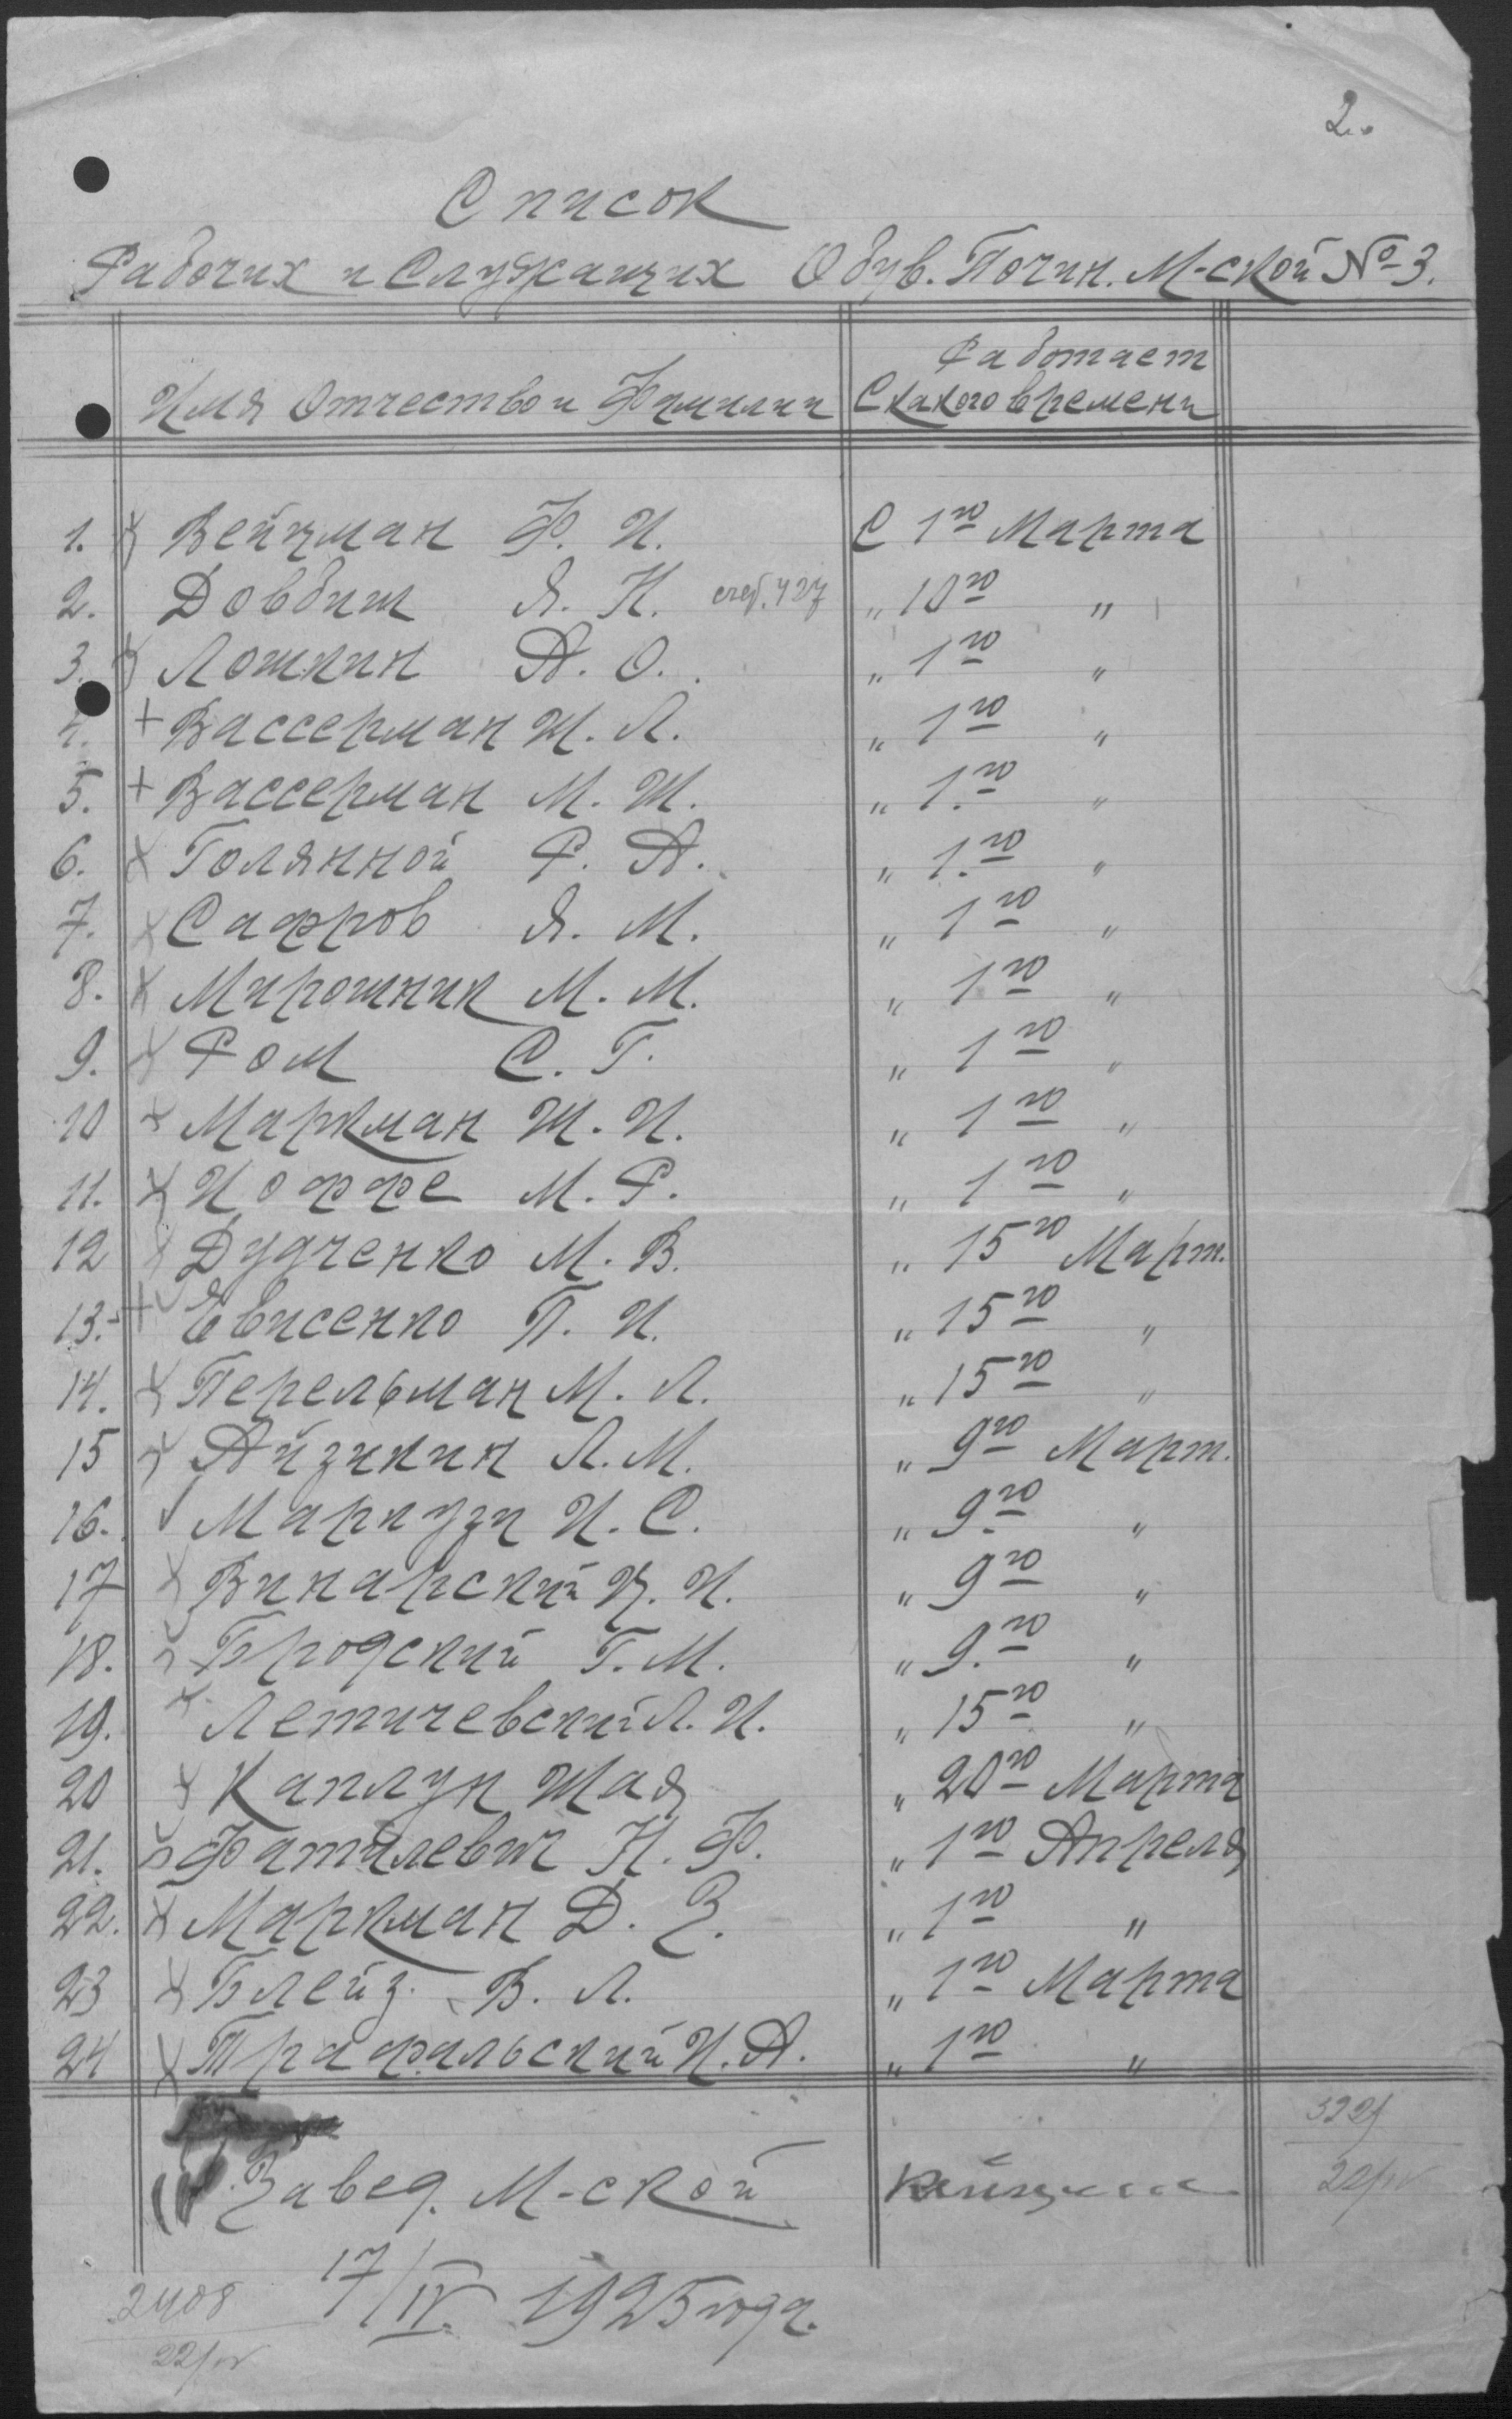 2.
Список
Рабочих и Служащих Обув. Почин. М-ской № 3.
Имя Отчество и Фамилии
Работает
С какого времени
1. Вейцман Ф. И. С 1го Марта
2. Довбиш Я. Н. „ 10го „
3. Лошкин А. О. „ 1го „
4. + Вассерман Ш. Л. „ 1го „
5. + Вассерман М. Ш. „ 1.го „
6. х Голянной Р. А. „ 1.го „
7. х Сафров Я. М. „ 1го „
8. х Мирошник М. М. „ 1го „
9. х Ром С. Г. „ 1го „
10 х Маркман Ш. И. „ 1го „
11. х Иоффе М. Р. „ 1го „
12 х Дудченко М. В. „ 15го Март.
13. + Евисенко П. И. „ 15го „
14. х Перельман М. Л. „ 15го „
15 х Айзикин Л. М. „ 9го Март.
16. ✓ Маркузи И. С. „ 9.го „
17 х Винарский И. „ 9го „
18. Бродский Г. М. „ 9.го „
19. х Летичевский Л. И. „ 15го „
20 х Каплун Шая „ 20го Марта
21. Фатилевич Н. Ф. „ 1го Апреля
22. х Маркман Д. З. „ 1го „
23 х Блейз. В. Л. „ 1го Марта
24 х Трафальский И. А. „ 1го „
Завед. М-ской Вейцман
17/IV. 1925 года.
2408
22/IV